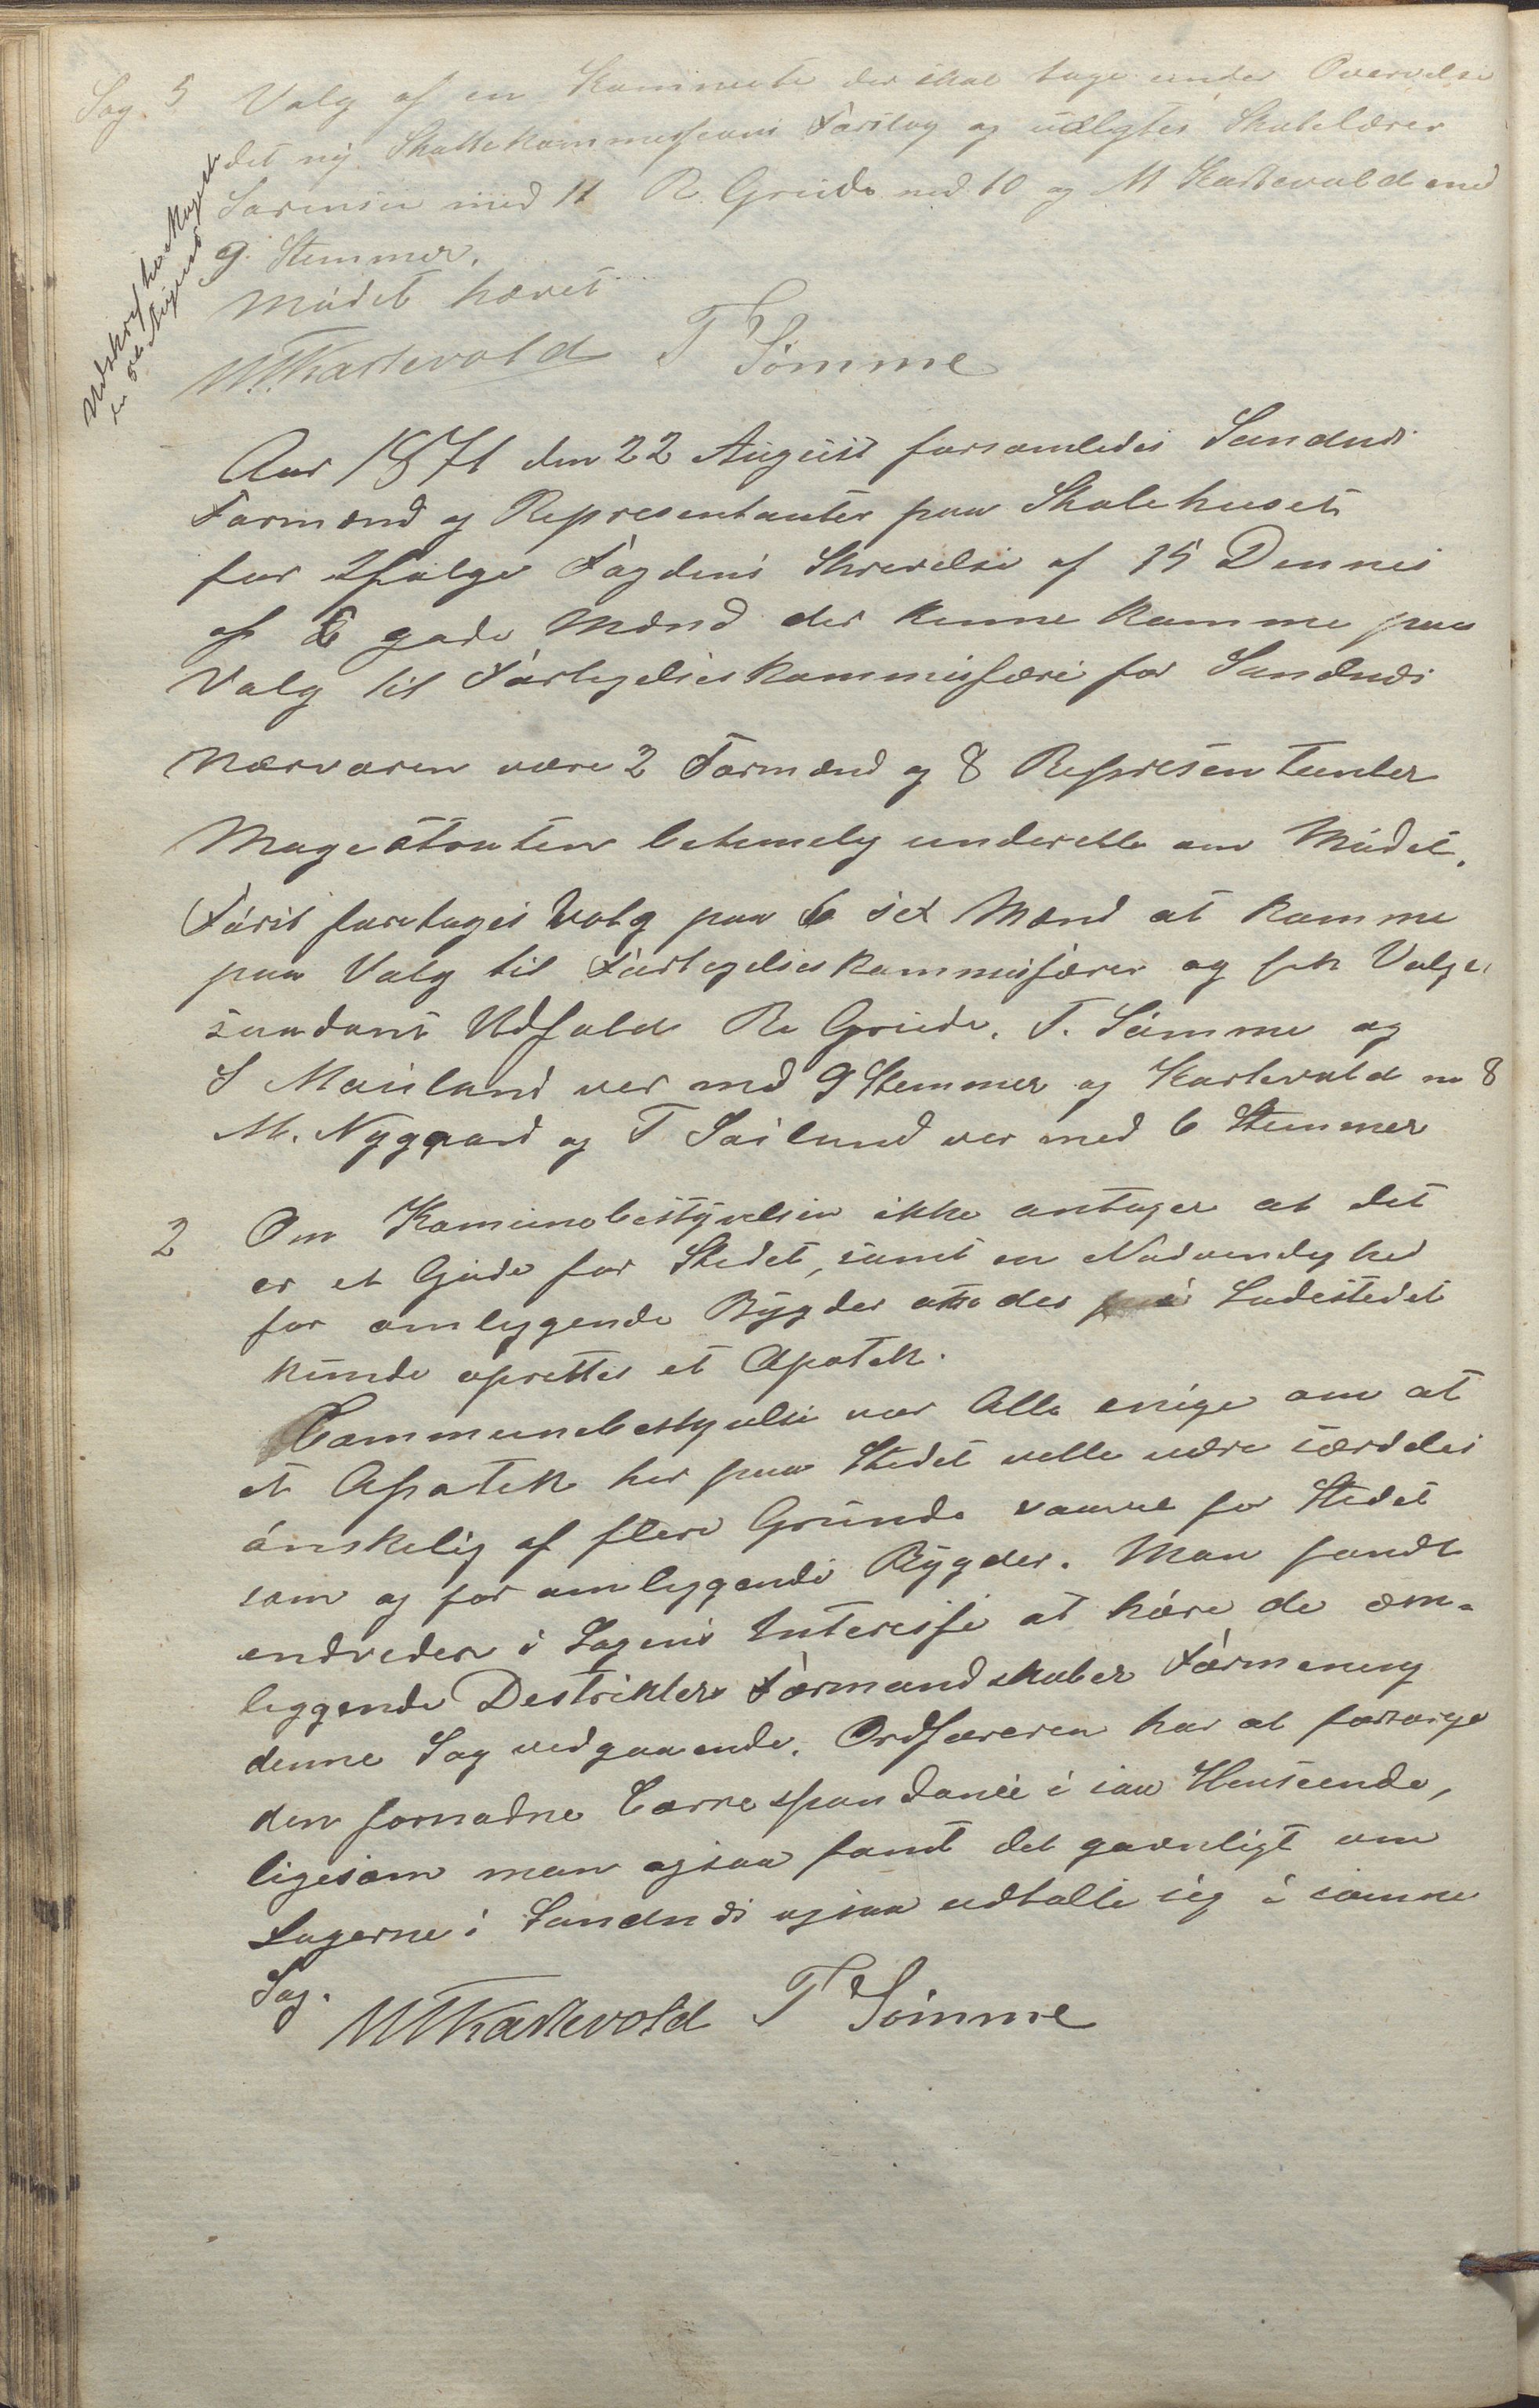 Sag. 5 Valg af en Kommiete der skal tage under Overvelse
det ny Skattekommessions Forslag og uælgtes Skolelærer
Sørensen med 11 R. Grude med 10 og M Kartevold med
9. Stemmer.
Mødet hævet
MTKartevold T Sømme
Udskrift Magist
den 5te August
Aar 1871 den 22 August forsamledes Sandnæs
Formænd og Representanter paa Skolehuset
for Ifølge Fogdens Skrivelse af 15 Dennes
af 6 gode Mænd der kunne komme paa
Valg til Forligelseskommisære for Sandnæs
Nærværen være 2 Formænd og 8 Representanter
Magestraten betimely underette om Mødet.
Først foretoges Valg paa 6 sex Mænd at komme
paa Valg til Forligelseskommisærer og fik Valge
saadant Udfald R. Grude. T. Sømme og
S Mauland ver med 9 Stemmer og Kartevold m 8
M. Nygaard og T. Soilund ver med 6 Stemmer
2 Om Komunebestyrelsen ikke antager at det
er et Gode for Stedet, samt en Nødvendyhed
for omlygende Bygder at der på Ladestedet
kunde oprettes et Apotek.
Communebestyrelse var Alle enige om at
et Apotek her paa Stedet velle være særdeles
ønskelig af flere Grunde saavel for Stedet
som og for omlyggende Bygder. Man fandt
endvedere i Sagens Interesse at høre de om-
leggende Destrikters Formandskaber Formening
denne Sag vedgaaende. Ordføreren har at forsørge
den fornødne Correspondance i saa Henseende,
ligesom man ogsaa fandt det gavnligt om
Lægerne i Sandnæs ogsaa udtalte sig i samme
Sag.
MTKartevold T Sømme